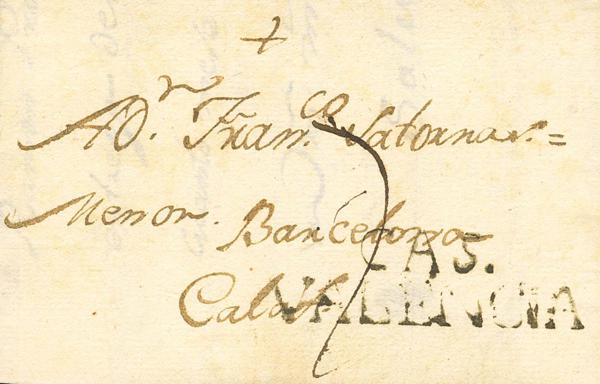 +
A Dn. Franco. Satorras =
Menor. Barcelona
CAS.
VALENCIA